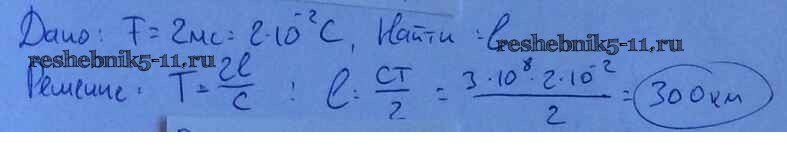 Дано: T = 2мс = 2·10⁻² С, Найти: l
reshebnik5-11.ru
reshebnik5-11.ru
Решение: T = 2l/c ; l = cT/2 = 3·10⁸·2·10⁻²/2 = 300км